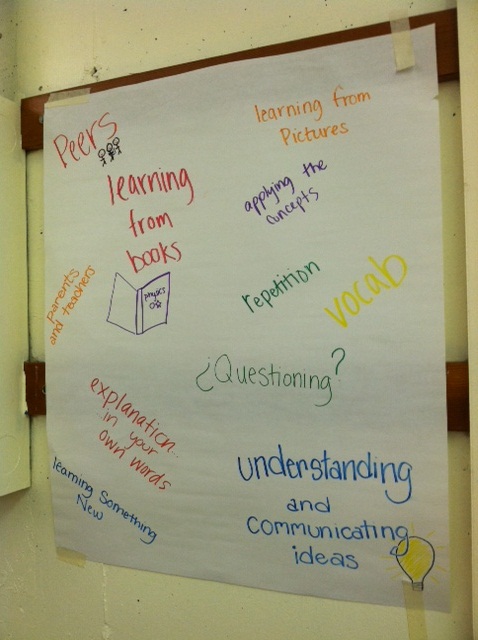 Peers
learning from
Pictures
learning
from
books
applying the
concepts
parents
and teachers
physics
repetition
vocab
¿Questioning?
explanation
in your
own words
learning Something
New
understanding
and
communicating
ideas